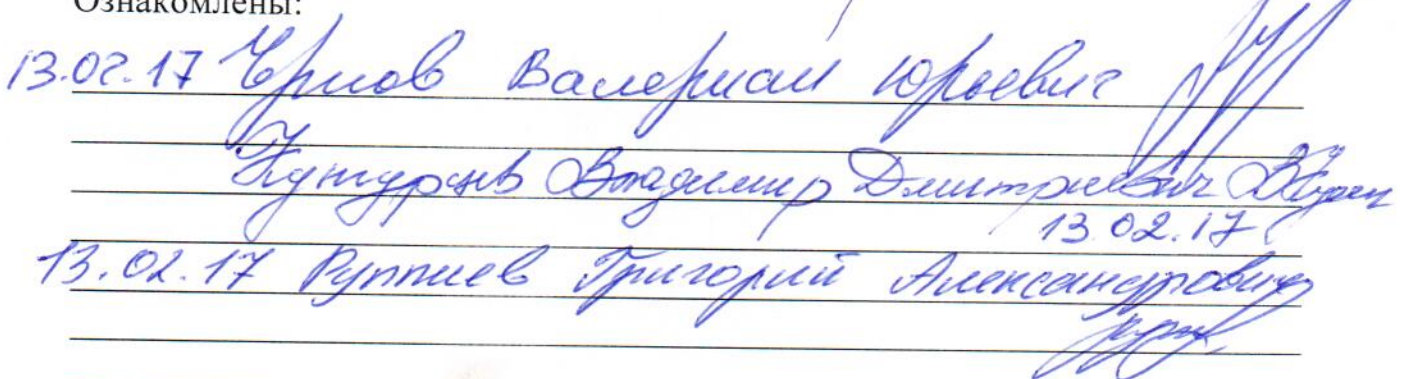 Ознакомлены:
13.02.17 Валериан Юрьевич
Владимир Дмитриевич
13.02.17
13.02.17 Руппиев Григорий Александрович